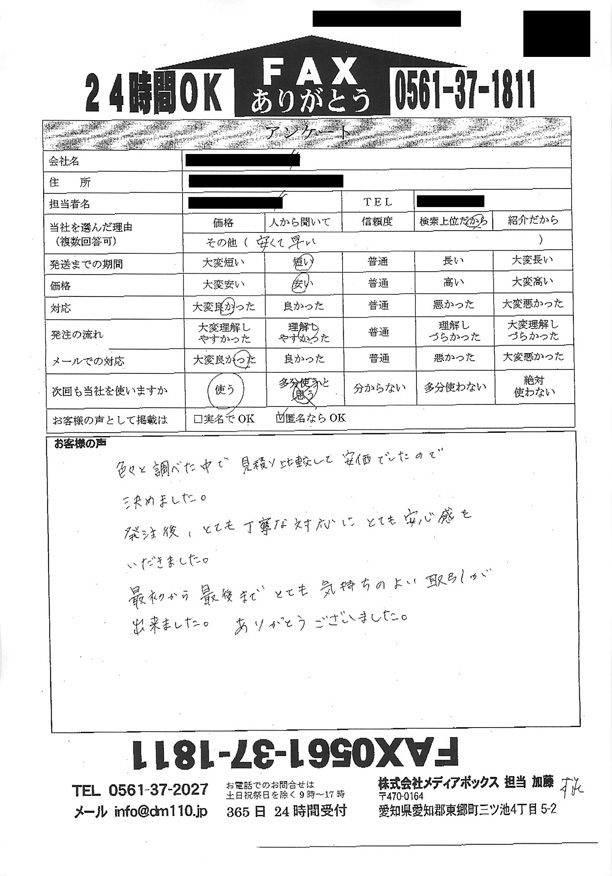 24時間OK
FAX
ありがとう
0561-37-1811
アンケート
会社名
住 所
担当者名 TEL
当社を選んだ理由
(複数回答可)
価格 人から聞いて 信頼度 検索上位だから 紹介だから
その他( 安くて早い )
発送までの期間 大変短い 短い 普通 長い 大変長い
価格 大変安い 安い 普通 高い 大変高い
対応 大変良かった 良かった 普通 悪かった 大変悪かった
発注の流れ 大変理解しやすかった 理解しやすかった 普通 理解しづらかった 大変理解しづらかった
メールでの対応 大変良かった 良かった 普通 悪かった 大変悪かった
次回も当社を使いますか 使う 多分使うと思う 分からない 多分使わない 絶対使わない
お客様の声として掲載は □実名でOK ☑匿名ならOK
お客様の声
色々と調べた中で 見積り比較して 安価でしたので
決めました。
発注後、とても丁寧な対応に とても安心感を
いだきました。
最初から最後まで とても 気持ちのよい 取引が
出来ました。 ありがとうございました。
FAX0561-37-1811
TEL 0561-37-2027
メール info@dm110.jp
お電話でのお問合せは
土日祝祭日を除く9時~17時
365日 24時間受付
株式会社メディアボックス 担当 加藤
〒470-0164
愛知県愛知郡東郷町三ツ池4丁目5-2